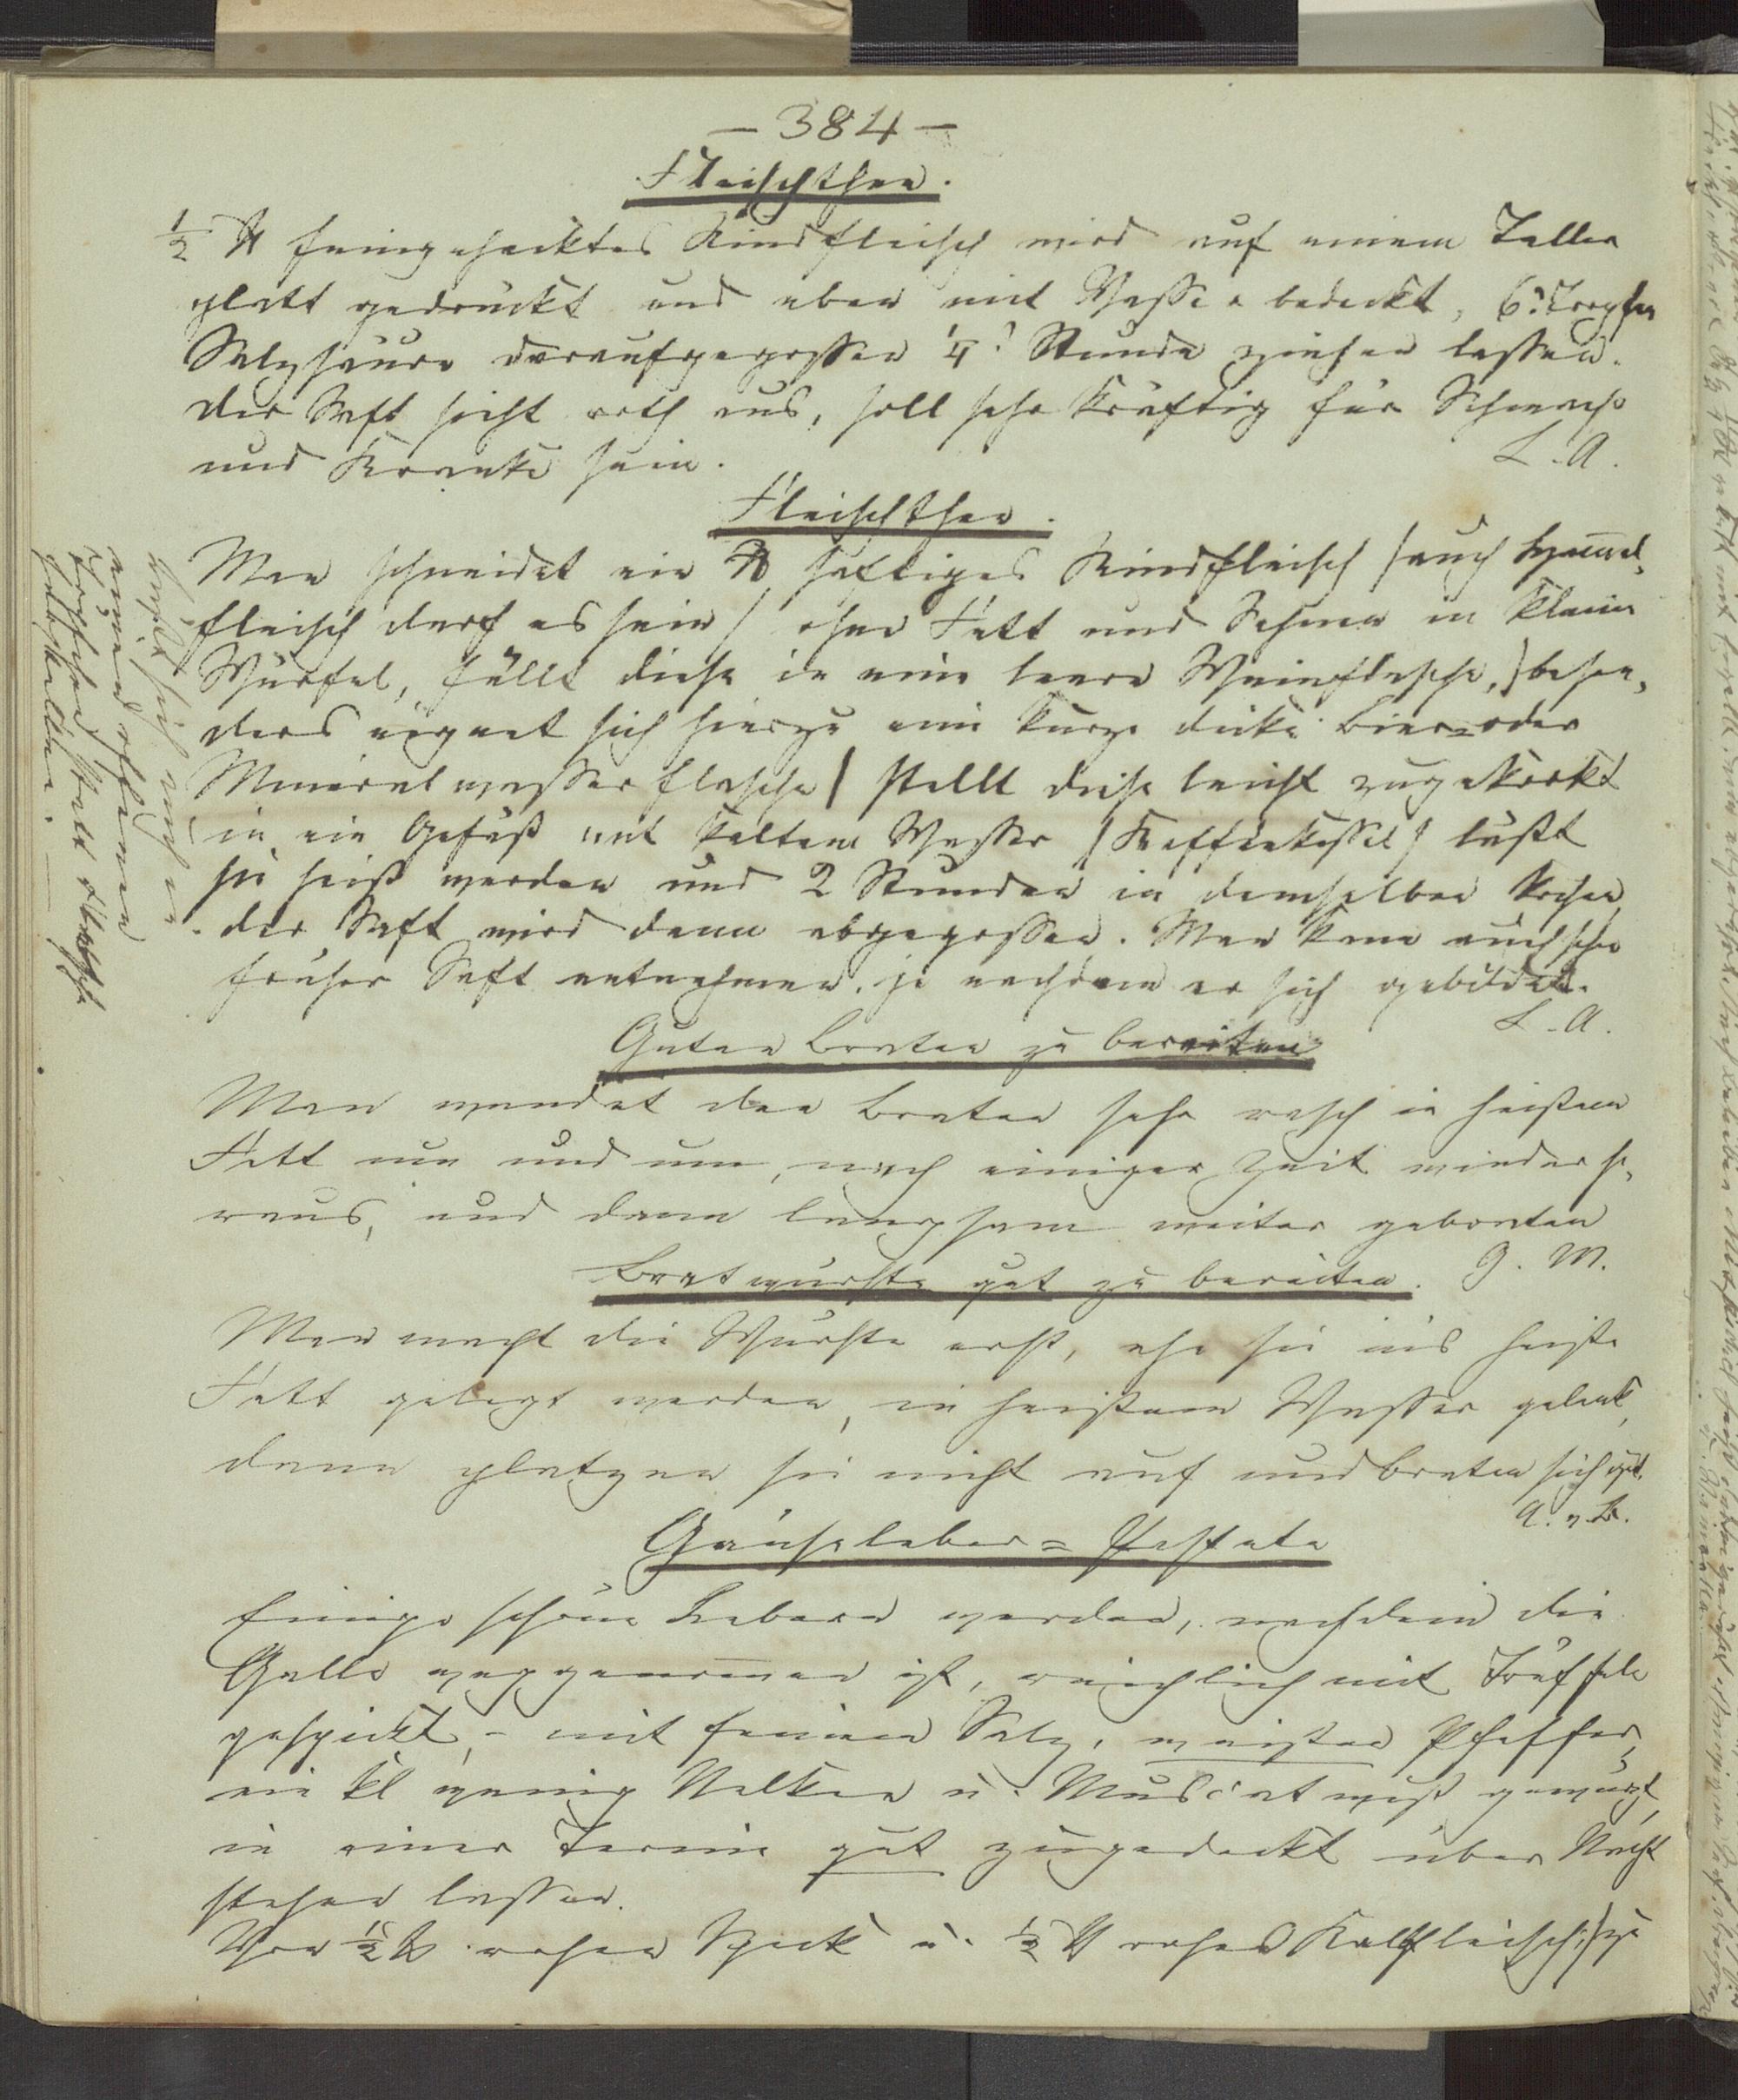 — 384 —
Fleischthee.
½ ℔ feingehacktes Rindfleisch wird auf einem Teller
glatt gedrückt und eben mit Wasser bedeckt, 6 Tropfen
Salzsäure daraufgegossen ¼ Stunde ziehen lassen.
der Saft sieht roth aus, soll sehr kräftig für Schwache
und Kranke sein.
L. A.
Fleischthee.
Man schneidet ein ℔ saftiges Rindfleisch /auch Hammel-
fleisch darf es sein/ ohne Fett und Sehnen in kleine
Würfel, füllt diese in eine leere Weinflasche, /beson-
ders eignet sich hierzu eine kurze dicke Bier= oder
Mineralwasserflasche/ stellt diese leicht zugekorkt
in ein Gefäß mit kaltem Wasser /Kaffeekessel/ läßt
sie heiß werden und 2 Stunden in demselben kochen
der Saft wird dann abgegossen. Man kann auch schon
früher Saft entnehmen, je nachdem er sich gebildet.
L. A.
sich auch
einen offenen
Guten Braten zu bereiten
Man wendet den Braten sehr rasch in heißem
Fett um und um, nach einiger Zeit wieder he-
raus, und dann langsam weiter gebraten
G. M.
Bratwürste gut zu bereiten.
Man macht die Würste erst, ehe sie ins heiße
Fett gelegt werden, in heißem Wasser gelenk,
dann platzen sie nicht auf und braten sich gut.
A. v. B.
Gänseleber=Pastete
Einige schöne Lebern werden, nachdem die
Galle weggenommen ist, reichlich mit Trüffeln
gespickt, - mit feinem Salz, weißen Pfeffer,
ein kl wenig Nelken u. Muscatnuß gewürzt,
in einer Terrine gut zugedeckt über Nacht
stehen lassen.
Von ½ ℔ rohen Speck u. ½ ℔ rohes Kalbfleisch, /zu